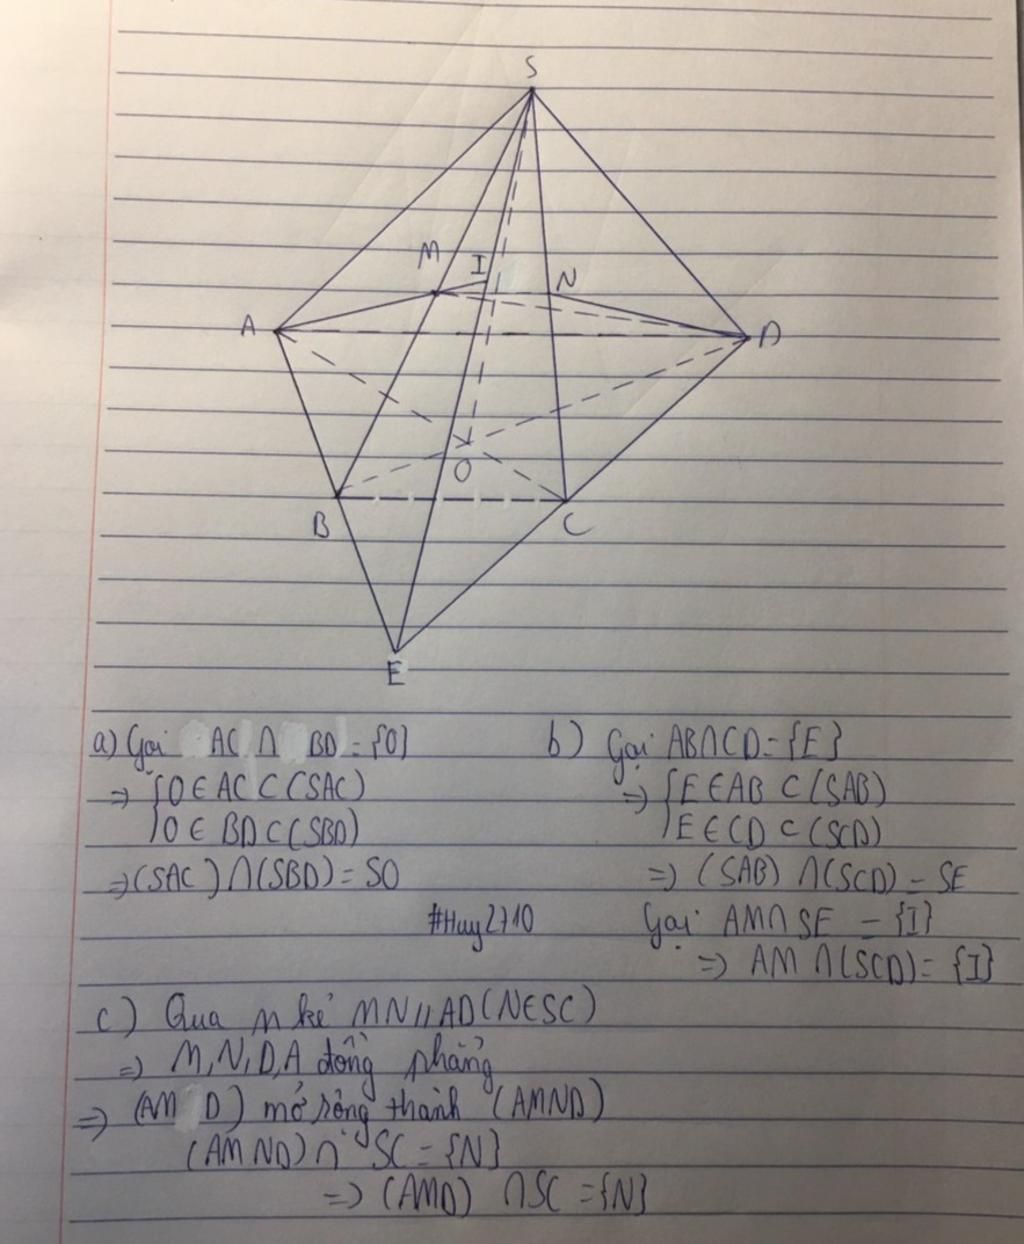 S
M
I
N
A
D
O
B
C
E
a) Gọi AC ∩ BD = {O}
⇒ { O ∈ AC ⊂ (SAC)
O ∈ BD ⊂ (SBD)
⇒ (SAC) ∩ (SBD) = SO
#Huy2710
b) Gọi AB ∩ CD = {E}
⇒ { E ∈ AB ⊂ (SAB)
E ∈ CD ⊂ (SCD)
⇒ (SAB) ∩ (SCD) = SE
Gọi AM ∩ SE = {I}
⇒ AM ∩ (SCD) = {I}
c) Qua M kẻ MN // AD (N ∈ SC)
⇒ M, N, D, A đồng phẳng
⇒ (AM D) mở rộng thành (AMND)
(AMND) ∩ SC = {N}
⇒ (AMD) ∩ SC = {N}